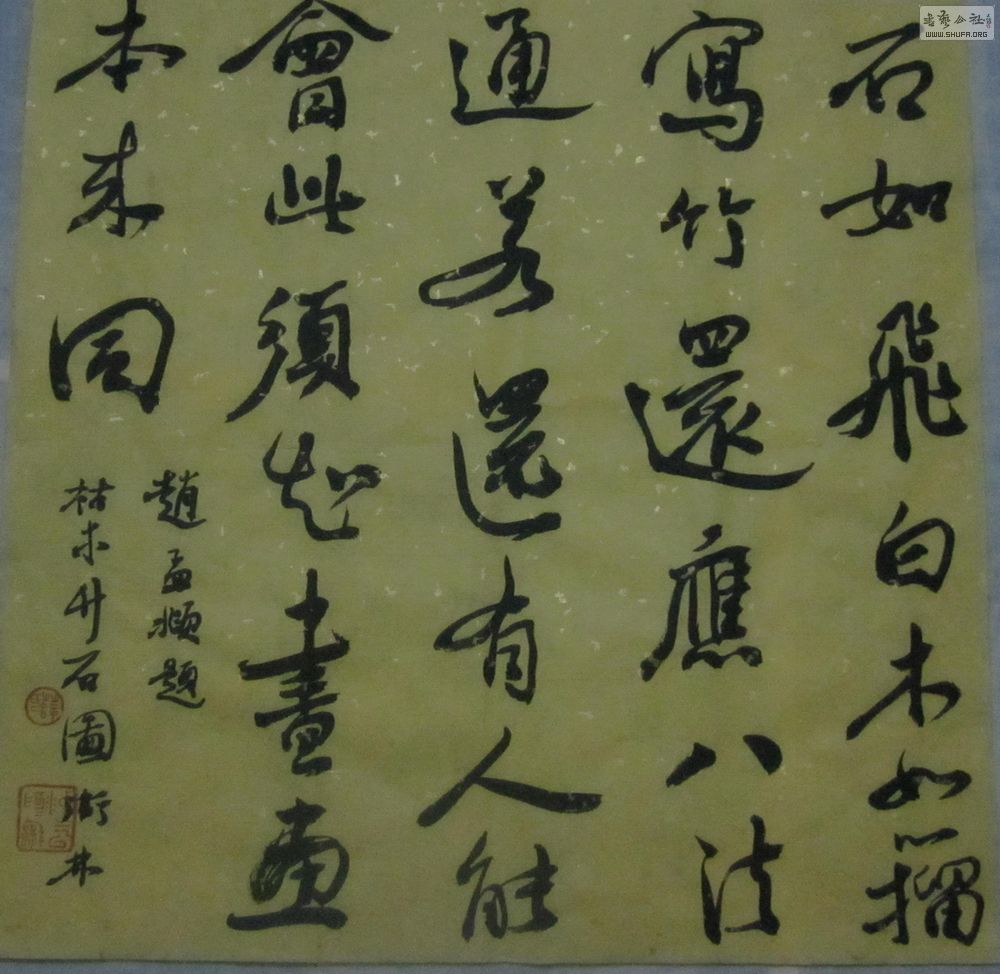 石如飛白木如籀
寫竹還應八法
通若還有人能
會此須知書畫
本來同
趙孟頫題
枯木竹石圖
书艺公社
WWW.SHUFA.ORG